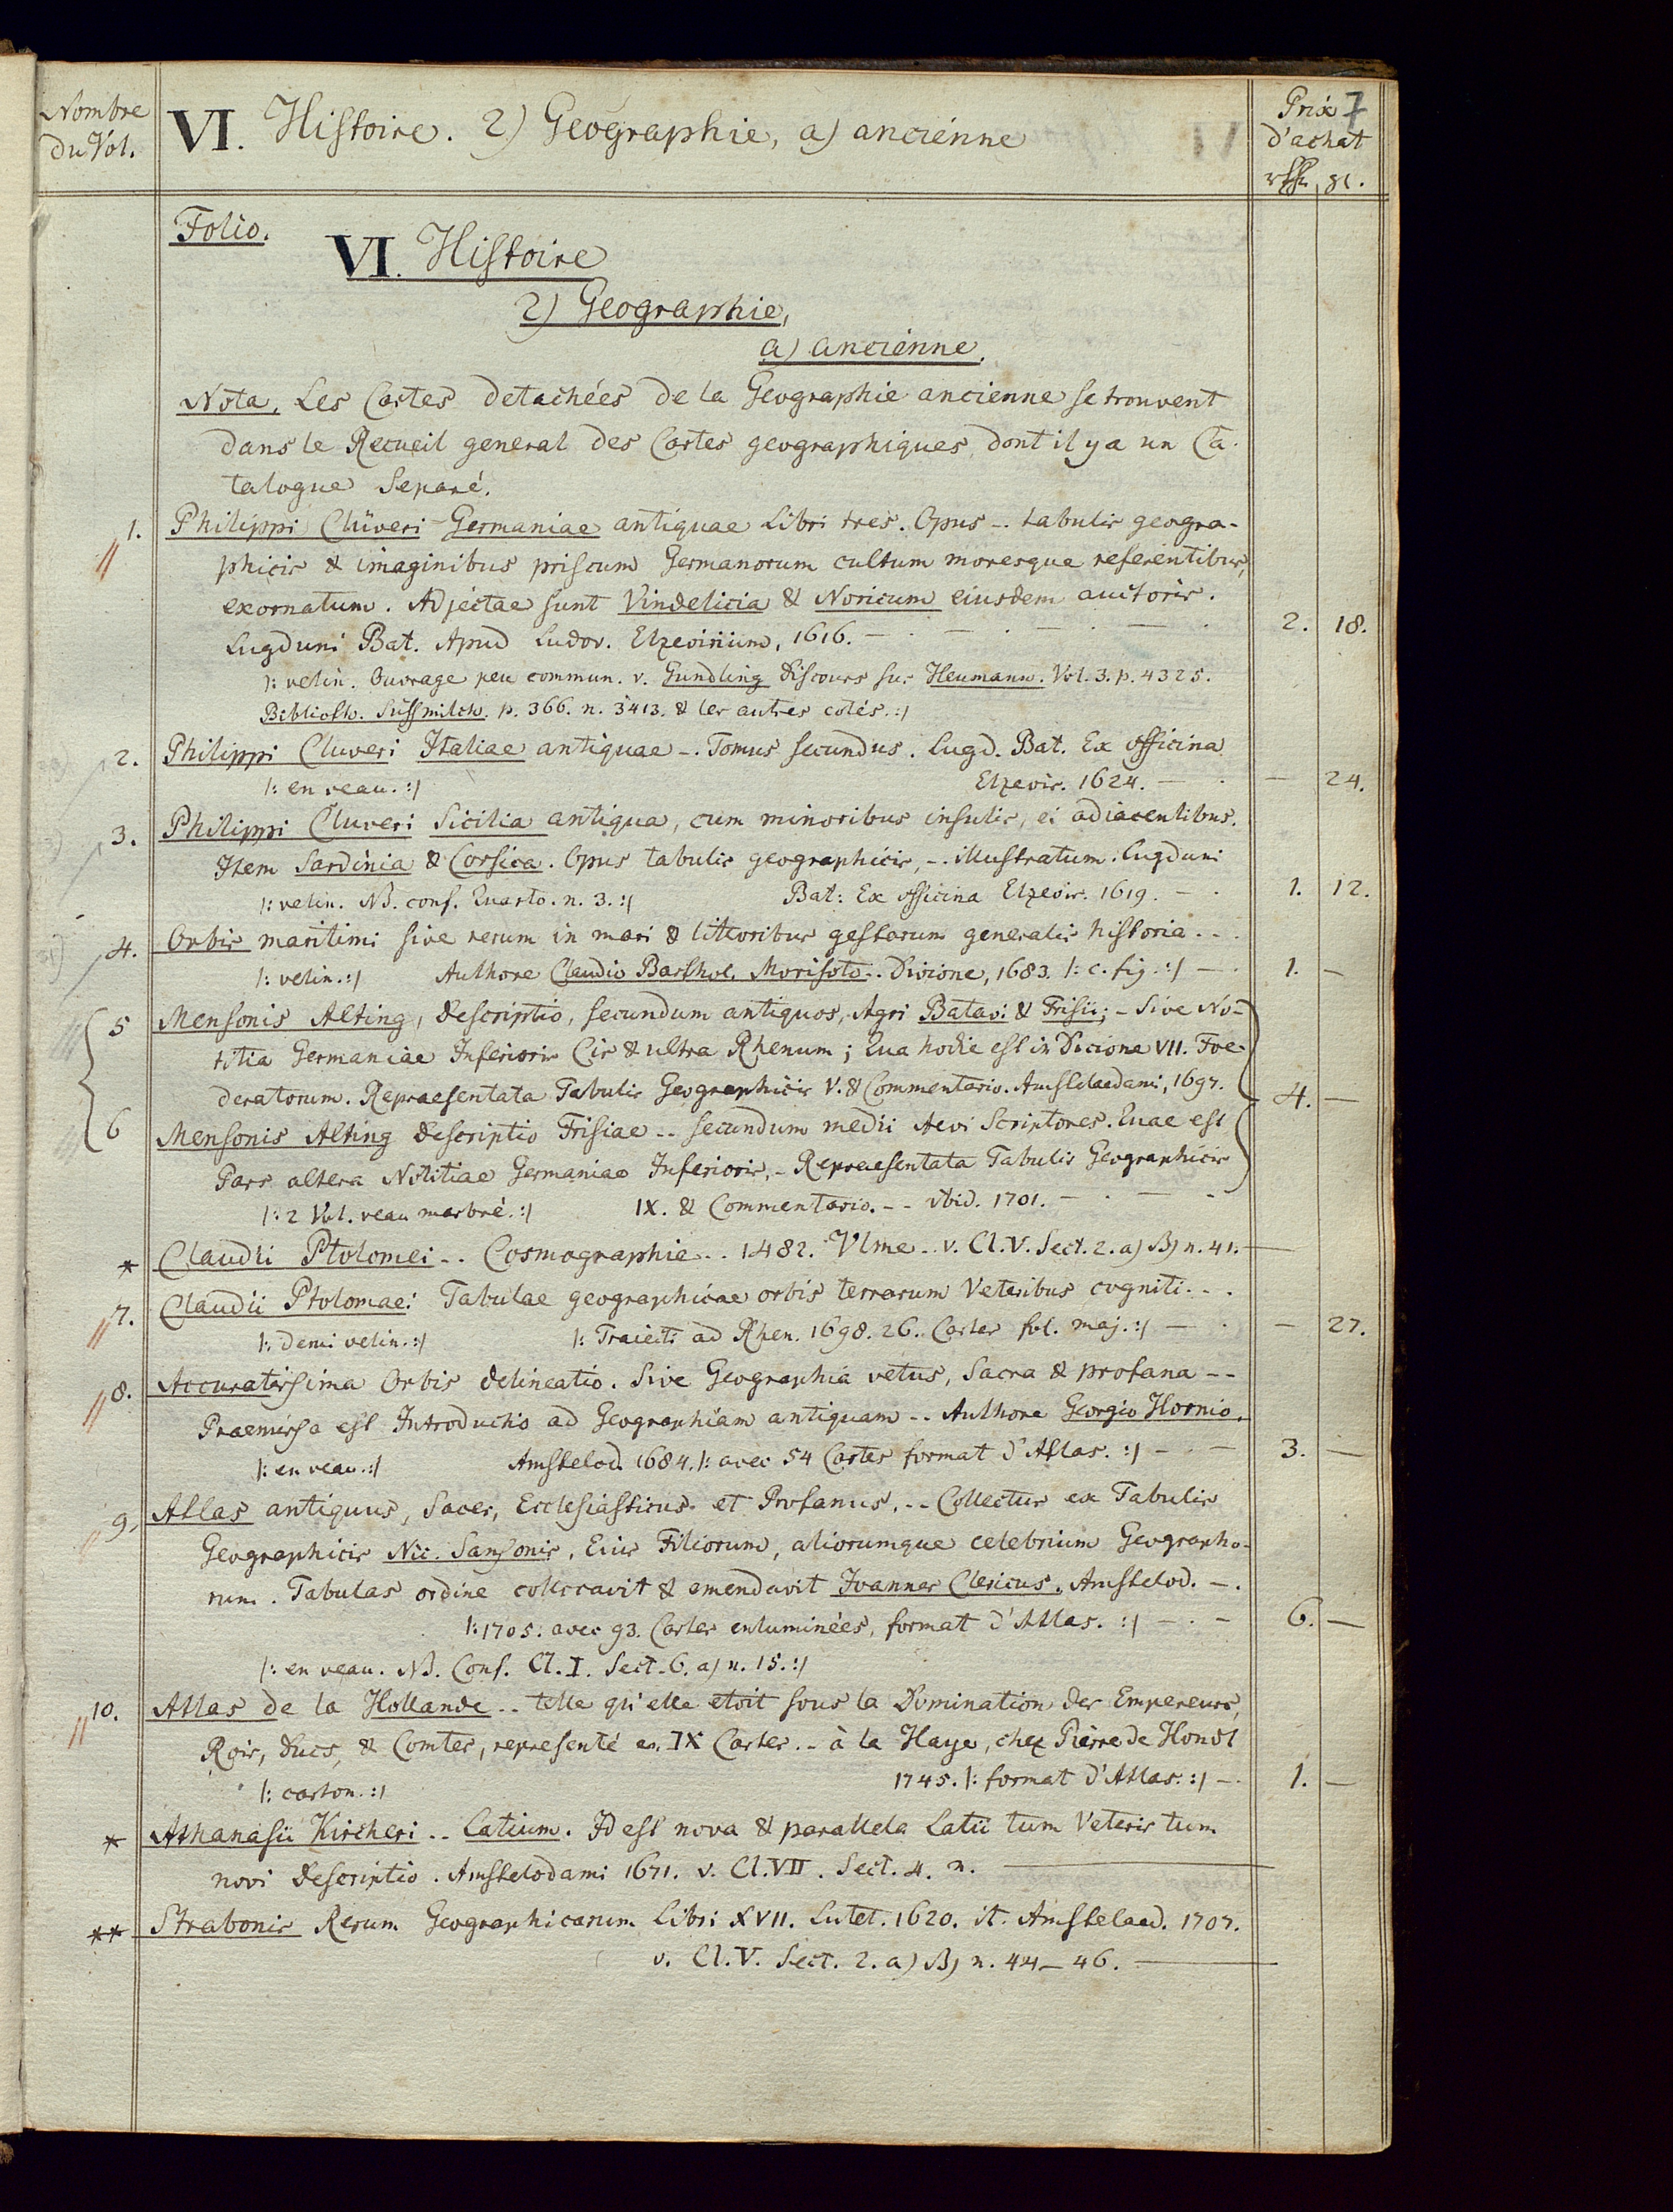 Nombre
du Vol.
VI. Histoire. 2) Geographie, a) ancienne
Prix 7
d'achat
rthlr. gl.
Folio.
VI. Histoire
2) Geographie,
a) ancienne.
Nota. Les Cartes detachées de la Geographie ancienne se trouvent
dans le Recueil general des Cartes geographiques, dont il y a un Ca-
talogue separé.
1. Philippi Clüveri Germaniae antiquae Libri tres. Opus -. tabulis geogra-
phicis & imaginibus priscum Germanorum cultum moresque referentibus,
exornatum. Adjectae sunt Vindelicia & Noricum eiusdem auctoris.
Lugduni Bat. Apud Ludov. Elzevirium, 1616. — . — . — . — . 2. 18.
/: velin. Ouvrage peu commun. v. Gundling Discours sur Heumann. Vol. 3. p. 4325.
Biblioth. Süssmilch. p. 366. n. 3413. & les autres cotés. :/
2. Philippi Cluveri Italiae antiquae -. Tomus secundus. Lugd. Bat. Ex officina
/: en veau. :/ Elzevir. 1624. — . — 24.
3. Philippi Cluveri Sicilia antiqua, cum minoribus insulis, ei adiacentibus.
Item Sardinia & Corsica. Opus tabulis geographicis, -. illustratum. Lugduni
/: velin. NB. conf. Quarto. n. 3. :/ Bat: Ex officina Elzevir. 1619. — . 1. 12.
4. Orbis maritimi sive rerum in mari & littoribus gestarum generalis historia - -.
/: velin. :/ Authore Claudio Barthol. Morisoto -. Divione, 1683. /: c. fig. :/ — . 1. —
5 Mensonis Alting, Descriptio, secundum antiquos, Agri Batavi & Frisii; - Sive No-
titia Germaniae Inferioris Cis & ultra Rhenum; Qua hodie est in Dicione VII. Foe-
deratorum. Repraesentata Tabulis Geographicis V. & Commentario. Amstelaedami, 1697. 4. —
6 Mensonis Alting Descriptio Frisiae -- secundum medii Aevi Scriptores. Quae est
Pars altera Notitiae Germaniae Inferioris, - Repraesentata Tabulis Geographicis
/: 2 Vol. veau marbré. :/ IX. & Commentario. - - Ibid. 1701. — . — .
* Claudii Ptolomei -- Cosmographie -- 1482. Vlme -. v. Cl. V. Sect. 2. a) B) n. 41. —
7. Claudii Ptolomaei Tabulae geographicae orbis terrarum Veteribus cogniti. - .
/: demi velin. :/ /: Traiecti ad Rhen. 1698. 26. Cartes fol. maj. :/ — . — 27.
8. Accuratissima Orbis delineatio. Sive Geographia vetus, Sacra & profana --
Praemissa est Introductio ad Geographiam antiquam -. Authore Georgio Hornio.
/: en veau. :/ Amstelod. 1684. /: avec 54 Cartes format d'Atlas. :/ — . — 3. —
9. Atlas antiquus, Sacer, Ecclesiasticus et Profanus, -- Collectus ex Tabulis
Geographicis Nic. Sansonis, Eius Filiorum, aliorumque celebrium Geographo-
rum. Tabulas ordine collocavit & emendavit Joannes Clericus. Amstelod. -.
/: 1705. avec 93. Cartes enluminées, format d'Atlas. :/ — . — 6. —
/: en veau. NB. Conf. Cl. I. Sect. 6. a) n. 15. :/
10. Atlas de la Hollande -. telle qu'elle etoit sous la Domination des Empereurs,
Rois, Ducs, & Comtes, representé en IX Cartes. - à la Haye, chez Pierre de Hondt
/: carton. :/ 1745. /: format d'Atlas. :/ — . 1. —
* Athanasii Kircheri -- Latium. Id est nova & parallela Latii tum Veteris tum
novi Descriptio. Amstelodami 1671. v. Cl. VII. Sect. 4. n. —
** Strabonis Rerum Geographicarum Libri XVII. Lutet. 1620. it. Amstelaed. 1707.
v. Cl. V. Sect. 2. a) B) n. 44 - 46. —